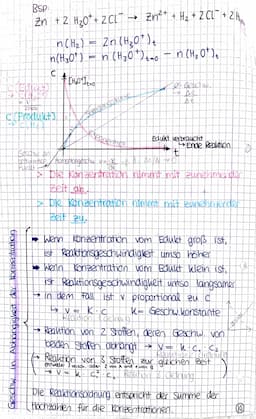 BSP:
Zn + 2 H₃O⁺ + 2 Cl⁻ → Zn²⁺ + H₂ + 2 Cl⁻ + 2 H₂
n(H₂) = 2n(H₃O⁺)t
n(H₃O⁺) = n(H₃O⁺)t=0 - n(H₃O⁺)t
c
[H₃O⁺]t=0
c(Edukt)
c(Produkt)
Edukt verbraucht
→ Ende Reaktion
t
> Die Konzentration nimmt mit zunehmender
Zeit ab.
> Die Konzentration nimmt mit zunehmender
Zeit zu.
Geschw. in Abhängigkeit der Konzentration
Wenn Konzentration vom Edukt groß ist,
ist Reaktionsgeschwindigkeit umso höher
Wenn Konzentration vom Edukt klein ist,
ist Reaktionsgeschwindigkeit umso langsamer
in dem Fall ist v proportional zu c
↳ v = k · c k = Geschw.konstante
Reaktion von 2 Stoffen, deren Geschw. von
beiden Stoffen abhängt → v = k · c₁ · c₂
Reaktion von 3 Stoffen zur gleichen Zeit
Die Reaktionsordnung entspricht der Summe der
Hochzahlen für die Konzentrationen.